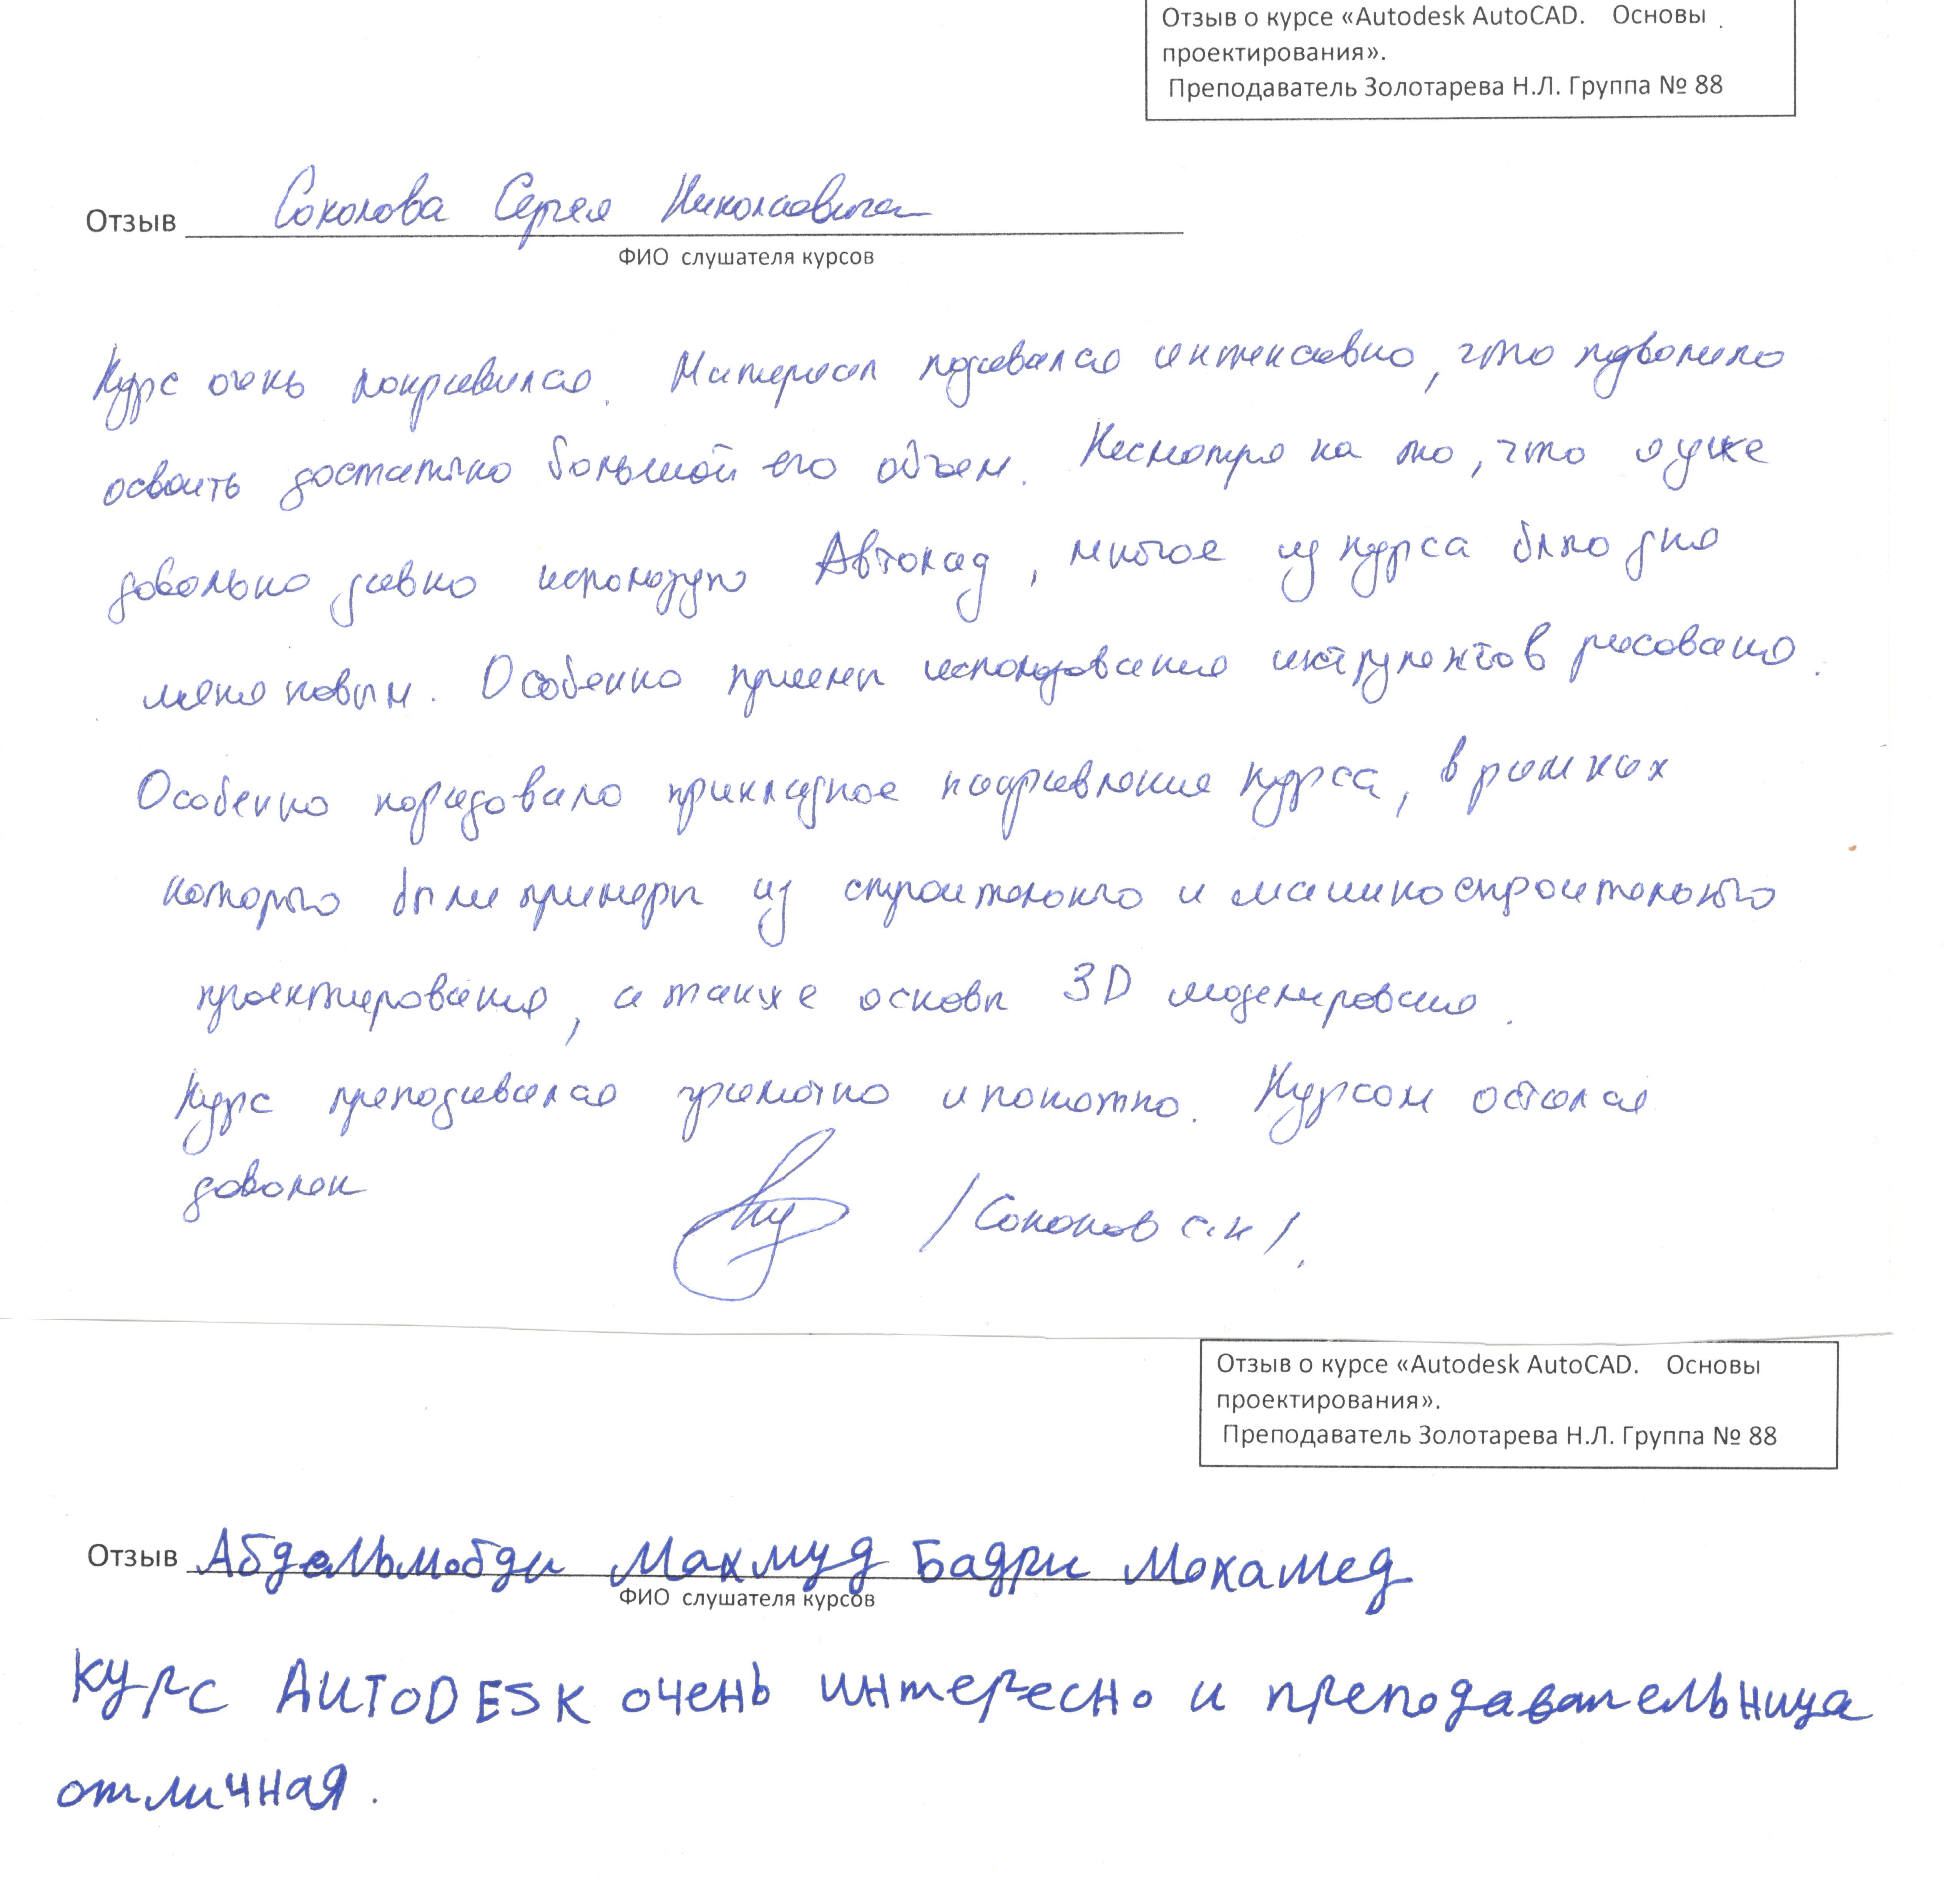 Отзыв о курсе «Autodesk AutoCAD. Основы
проектирования».
Преподаватель Золотарева Н.Л. Группа № 88
Отзыв Соколова Сергея Николаевича
ФИО слушателя курсов
Курс очень понравился. Материал подавался интенсивно, что позволило
освоить достаточно большой его объем. Несмотря на то, что я уже
довольно давно использую Автокад, многое из курса было для
меня новым. Особенно приемы использования инструментов рисования.
Особенно порадовало прикладное направление курса, в рамках
которого были примеры из строительного и машиностроительного
проектирования, а также основы 3D моделирования.
Курс преподавался грамотно и понятно. Курсом остался
доволен
/Соколов С.Н/.
Отзыв о курсе «Autodesk AutoCAD. Основы
проектирования».
Преподаватель Золотарева Н.Л. Группа № 88
Отзыв Абдельмобди Махмуд Бадри Мохамед
ФИО слушателя курсов
Курс AUTODESK очень интересно и преподавательница
отличная.